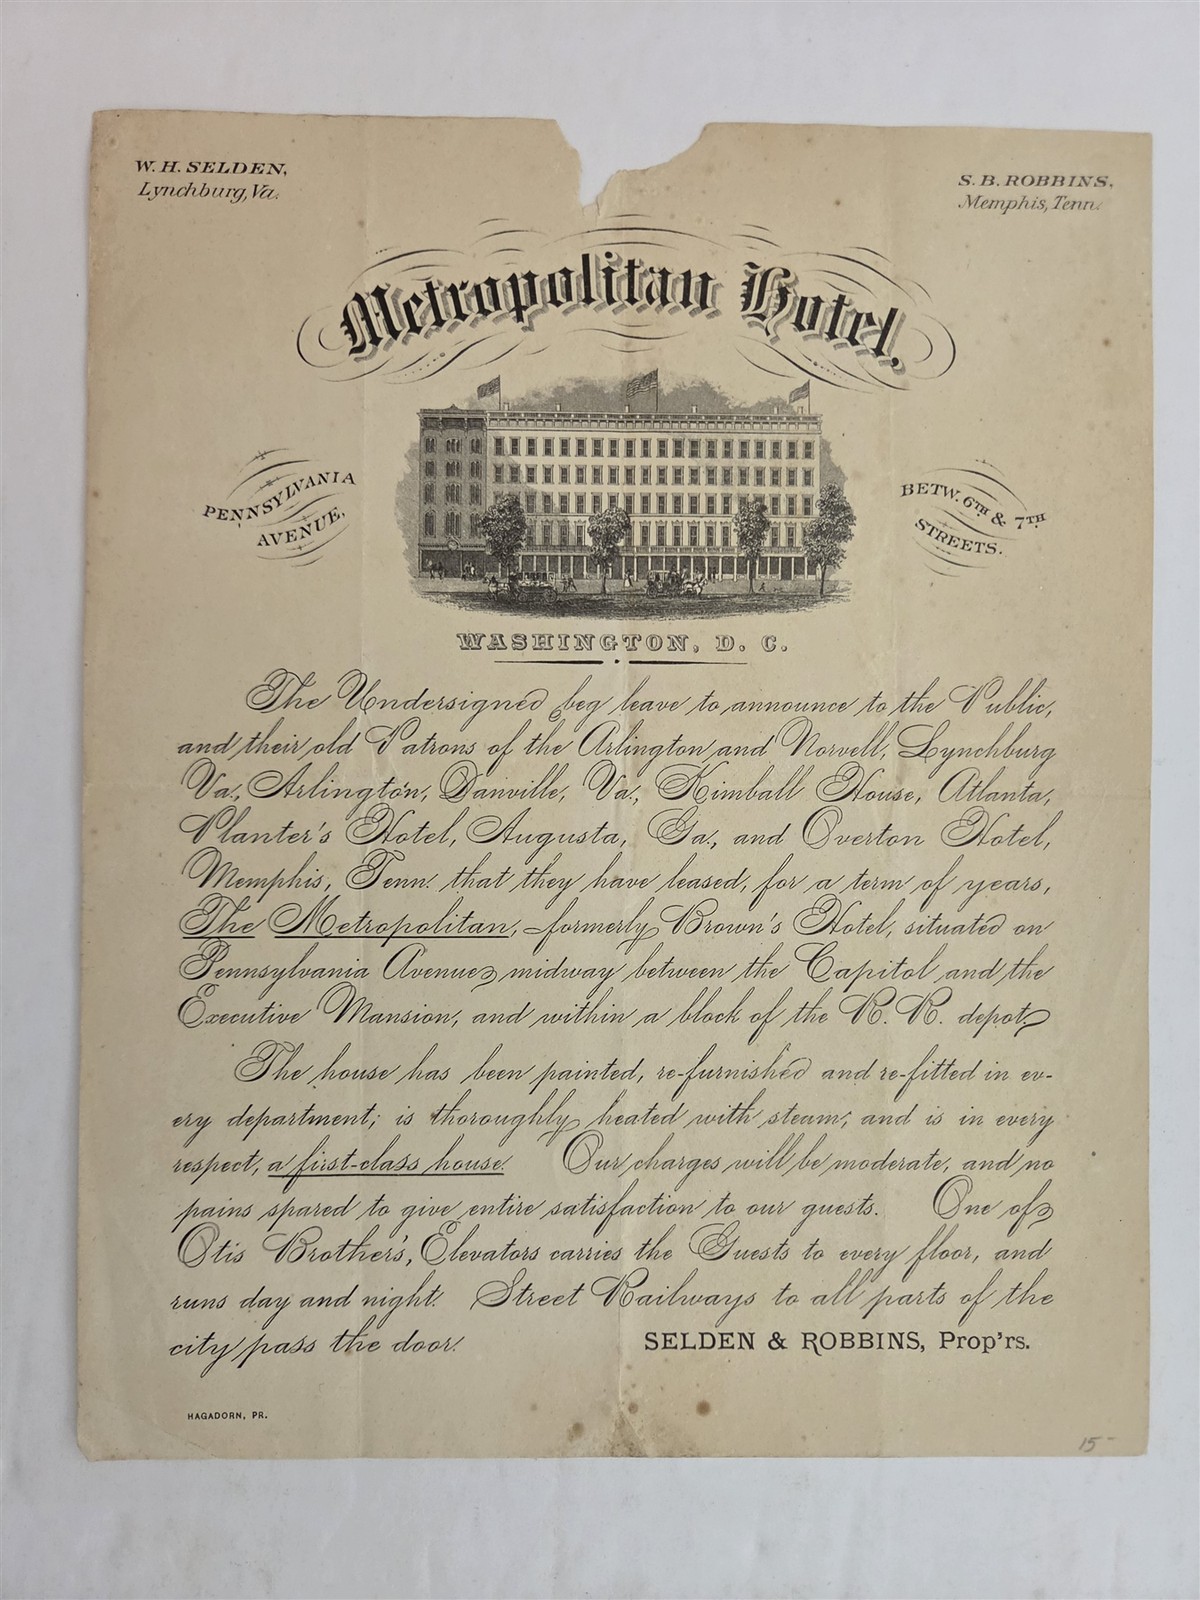 W. H. SELDEN,
Lynchburg, Va.
S. B. ROBBINS,
Memphis, Tenn.
Metropolitan Hotel,
PENNSYLVANIA
AVENUE,
BETW. 6TH & 7TH
STREETS.
WASHINGTON, D. C.
The Undersigned beg leave to announce to the Public,
and their old Patrons of the Arlington and Norvell, Lynchburg
Va., Arlington, Danville, Va., Kimball House, Atlanta,
Planter's Hotel, Augusta, Ga., and Overton Hotel,
Memphis, Tenn. that they have leased, for a term of years,
The Metropolitan, formerly Brown's Hotel, situated on
Pennsylvania Avenue, midway between the Capitol and the
Executive Mansion, and within a block of the R. R. depot.
The house has been painted, re-furnished and re-fitted in ev-
ery department; is thoroughly heated with steam; and is in every
respect, a first-class house. Our charges will be moderate, and no
pains spared to give entire satisfaction to our guests. One of
Otis Brother's, Elevators carries the Guests to every floor, and
runs day and night. Street Railways to all parts of the
city pass the door.
SELDEN & ROBBINS, Prop'rs.
HAGADORN, PR.
15-